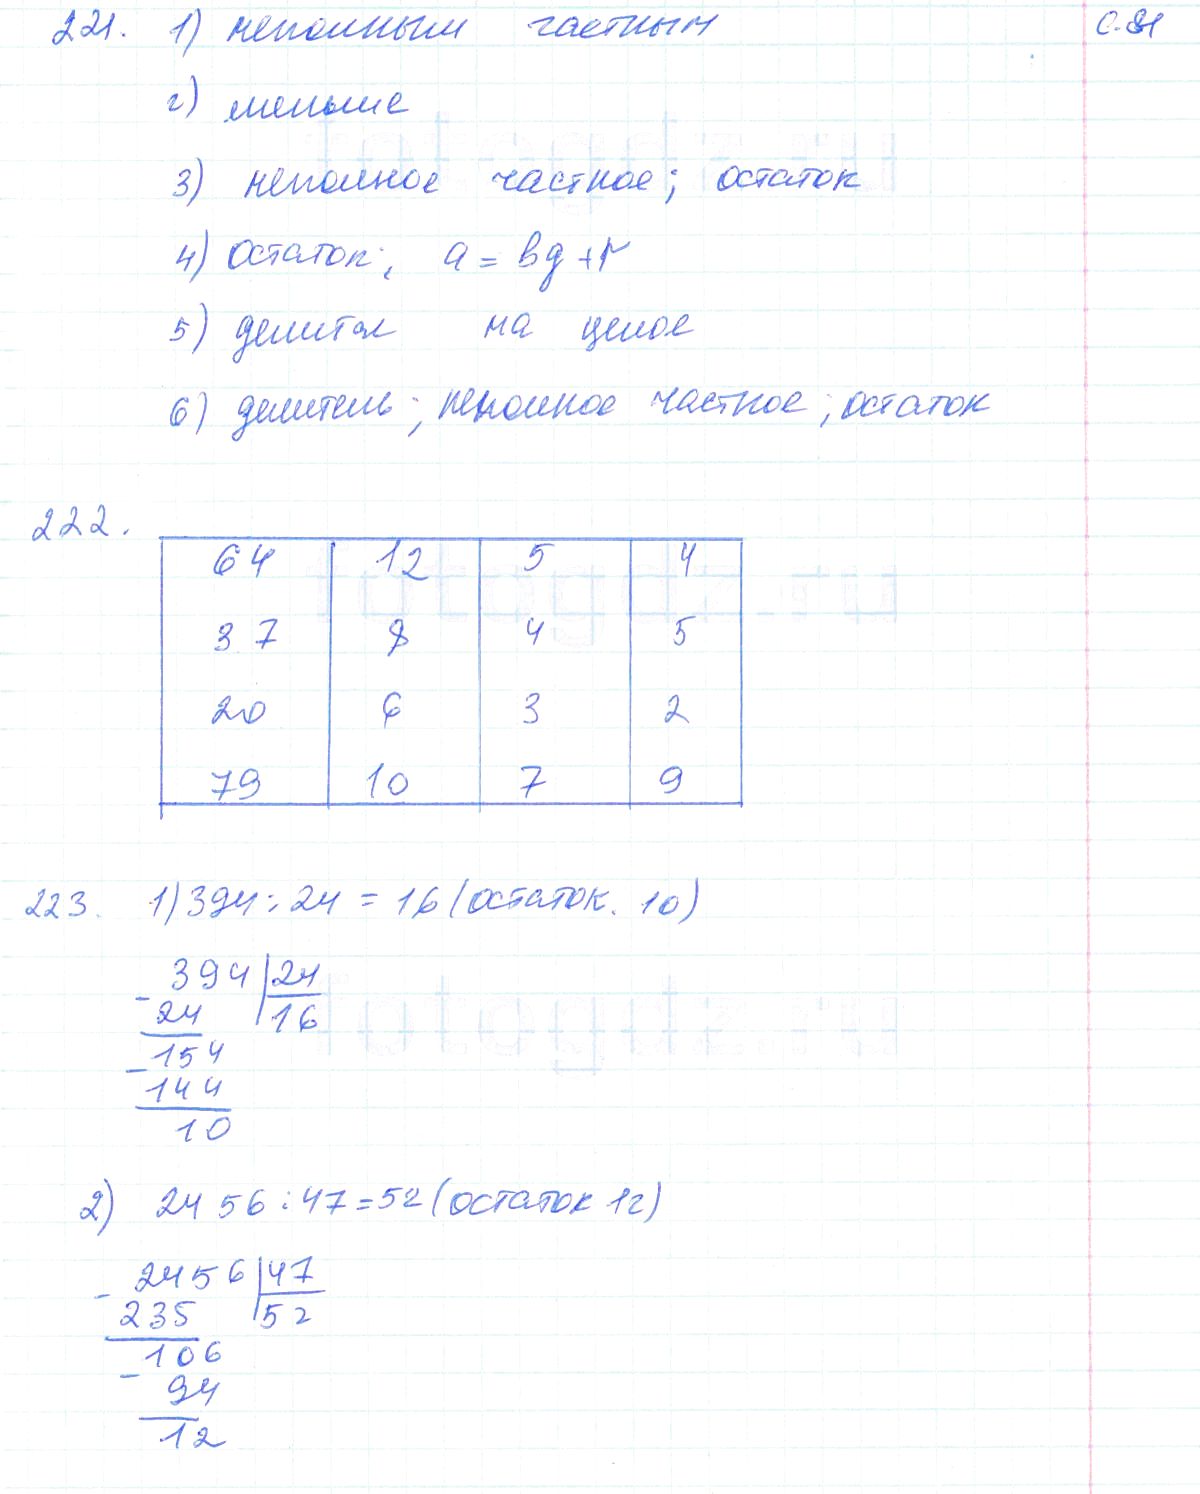 221. 1) неполным частным с. 81
2) меньше
3) неполное частное; остаток
4) остаток; a = bq + r
5) делится на целое
6) делитель; неполное частное; остаток
222.
64 12 5 4
37 8 4 5
20 6 3 2
79 10 7 9
223. 1) 394 : 24 = 16 (остаток. 10)
- 394 24
24 16
- 154
144
10
2) 2456 : 47 = 52 (остаток 12)
- 2456 47
235 52
- 106
94
12
fotogdz.ru
fotogdz.ru
fotogdz.ru